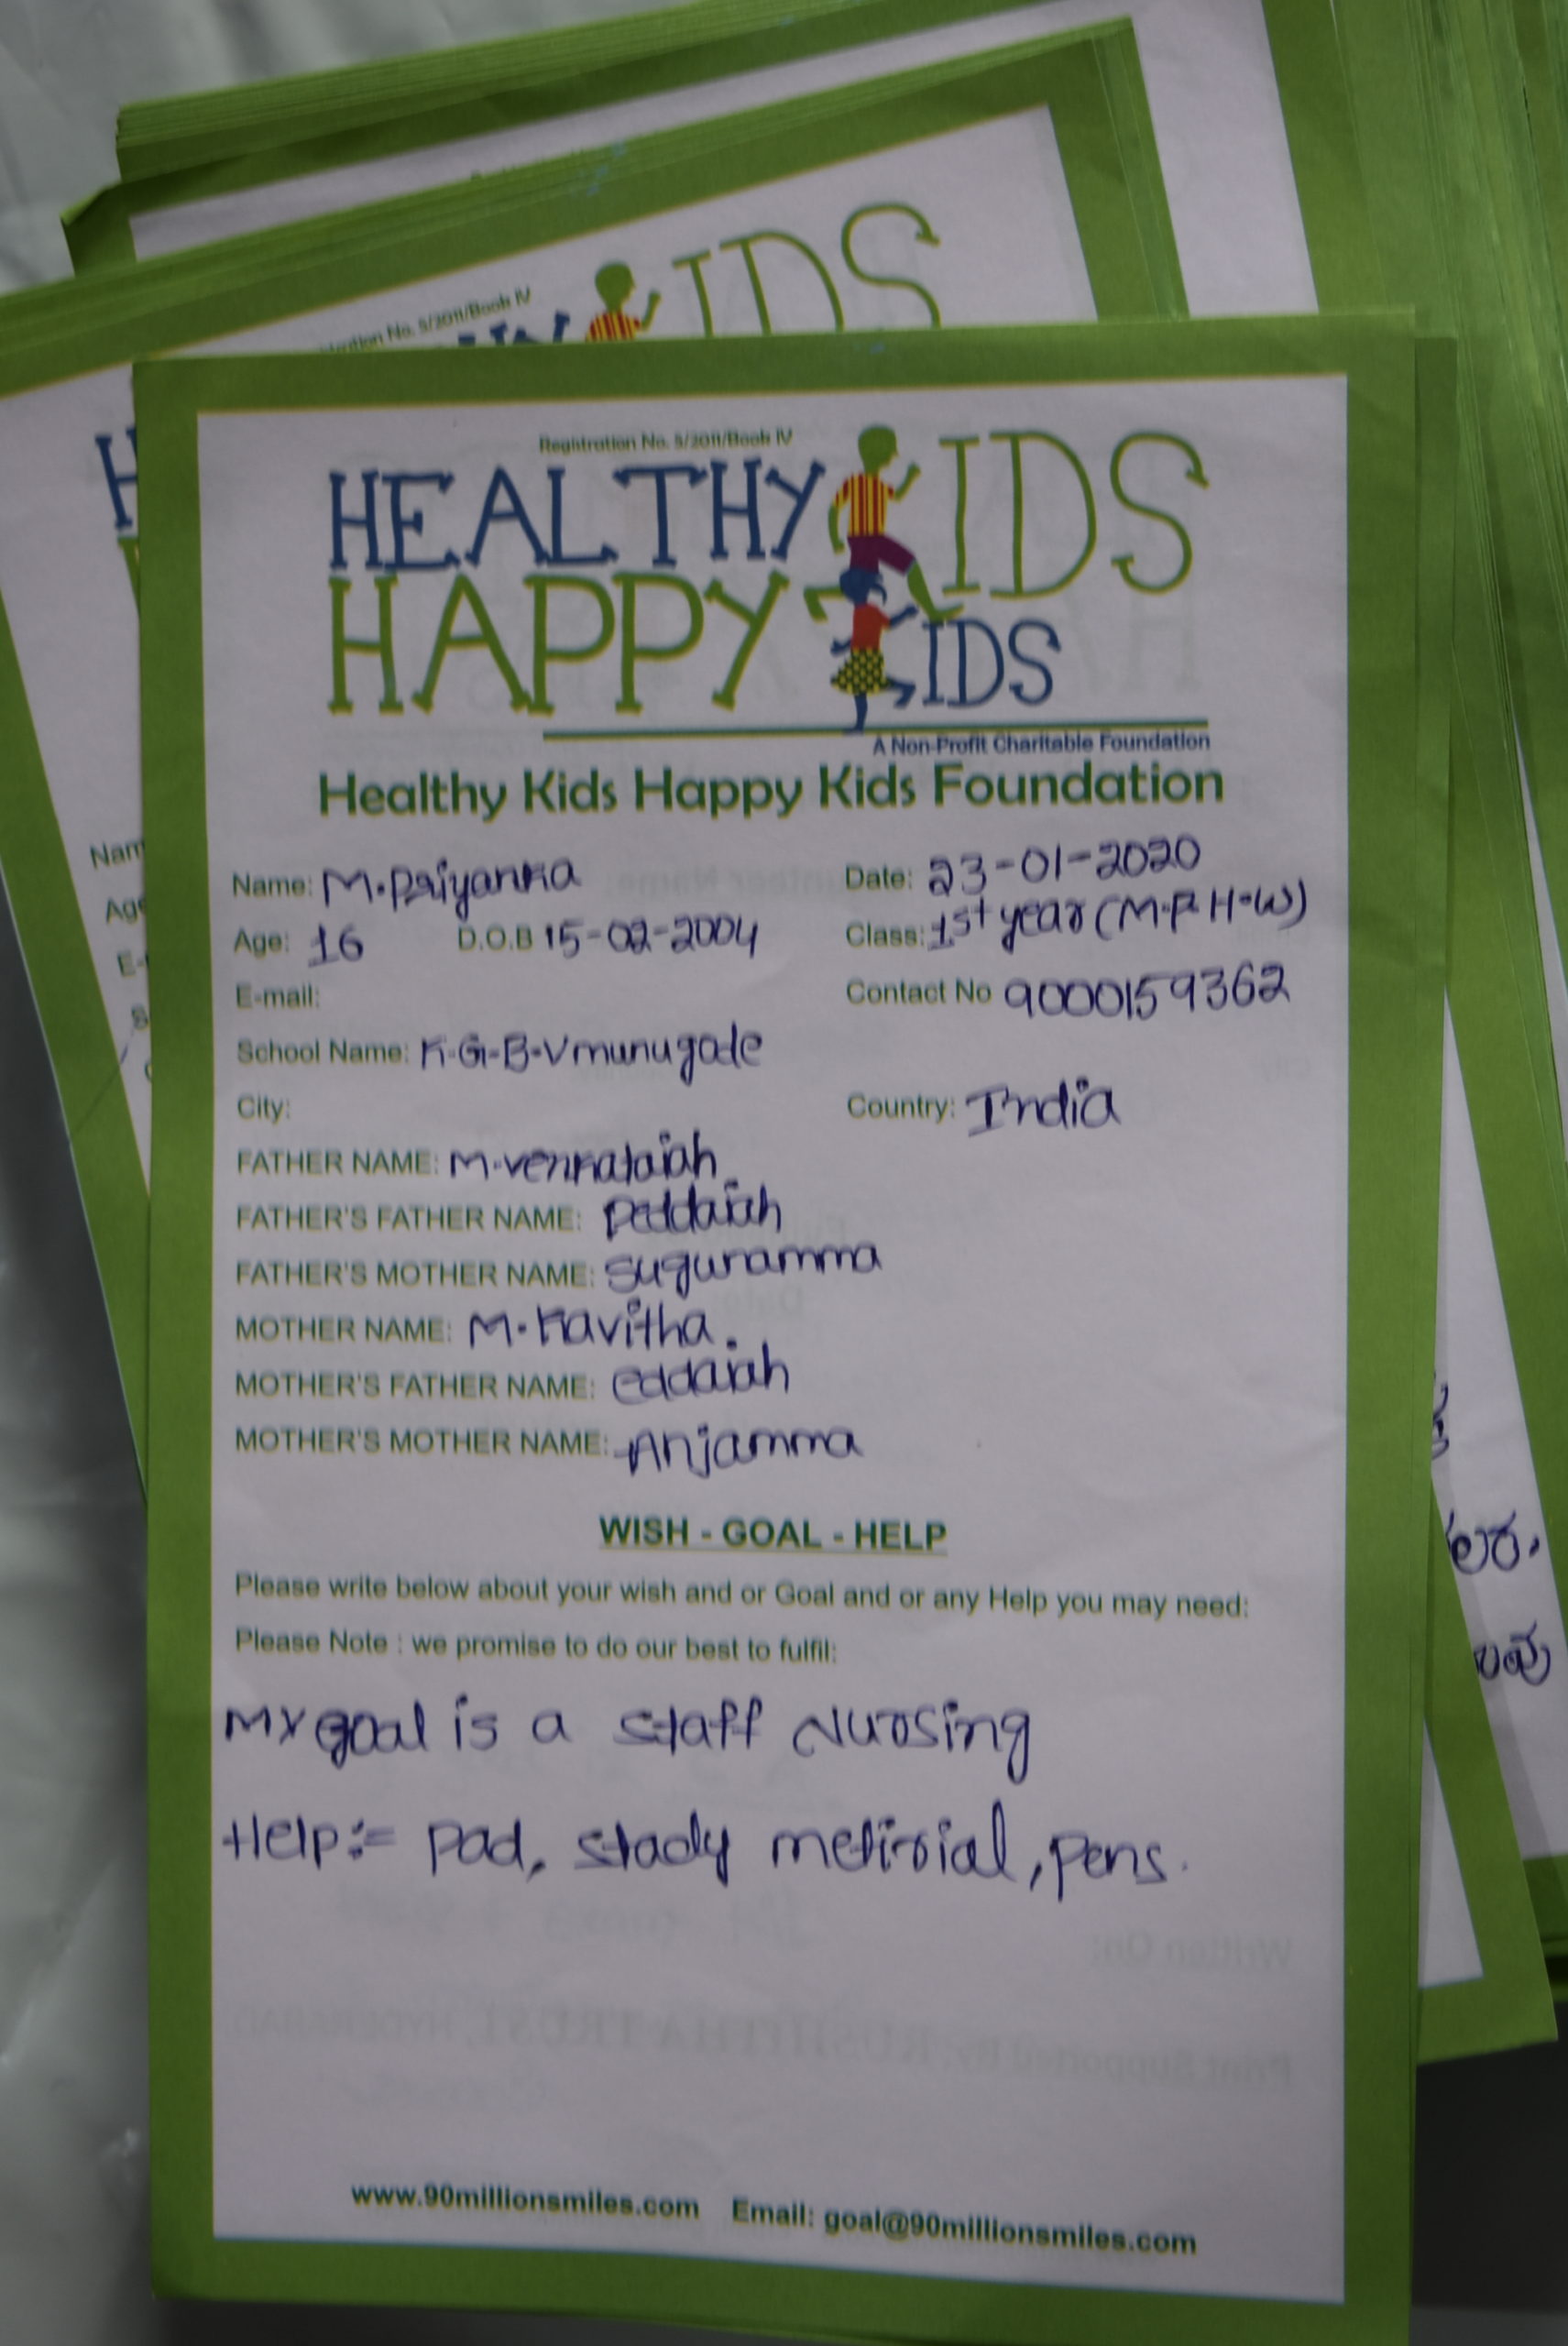 Registration No. 5/2011/Book IV
IDS
Registration No. 5/2011/Book IV
HEALTHY KIDS
HAPPY KIDS
A Non-Profit Charitable Foundation
Healthy Kids Happy Kids Foundation
Name: M.Priyanka Date: 23-01-2020
Age: 16 D.O.B 15-02-2004 Class: 1st year (M.P.H.W)
E-mail: Contact No 9000159362
School Name: K-G-B-V munugode
City: Country: India
FATHER NAME: M.venkataiah
FATHER'S FATHER NAME: Peddaiah
FATHER'S MOTHER NAME: suguramma
MOTHER NAME: M.Kavitha.
MOTHER'S FATHER NAME: eddaiah
MOTHER'S MOTHER NAME: Anjamma
WISH - GOAL - HELP
Please write below about your wish and or Goal and or any Help you may need:
Please Note : we promise to do our best to fulfil:
My goal is a staff Nursing
Help:= pad, stady metirial, pens.
www.90millionsmiles.com Email: goal@90millionsmiles.com